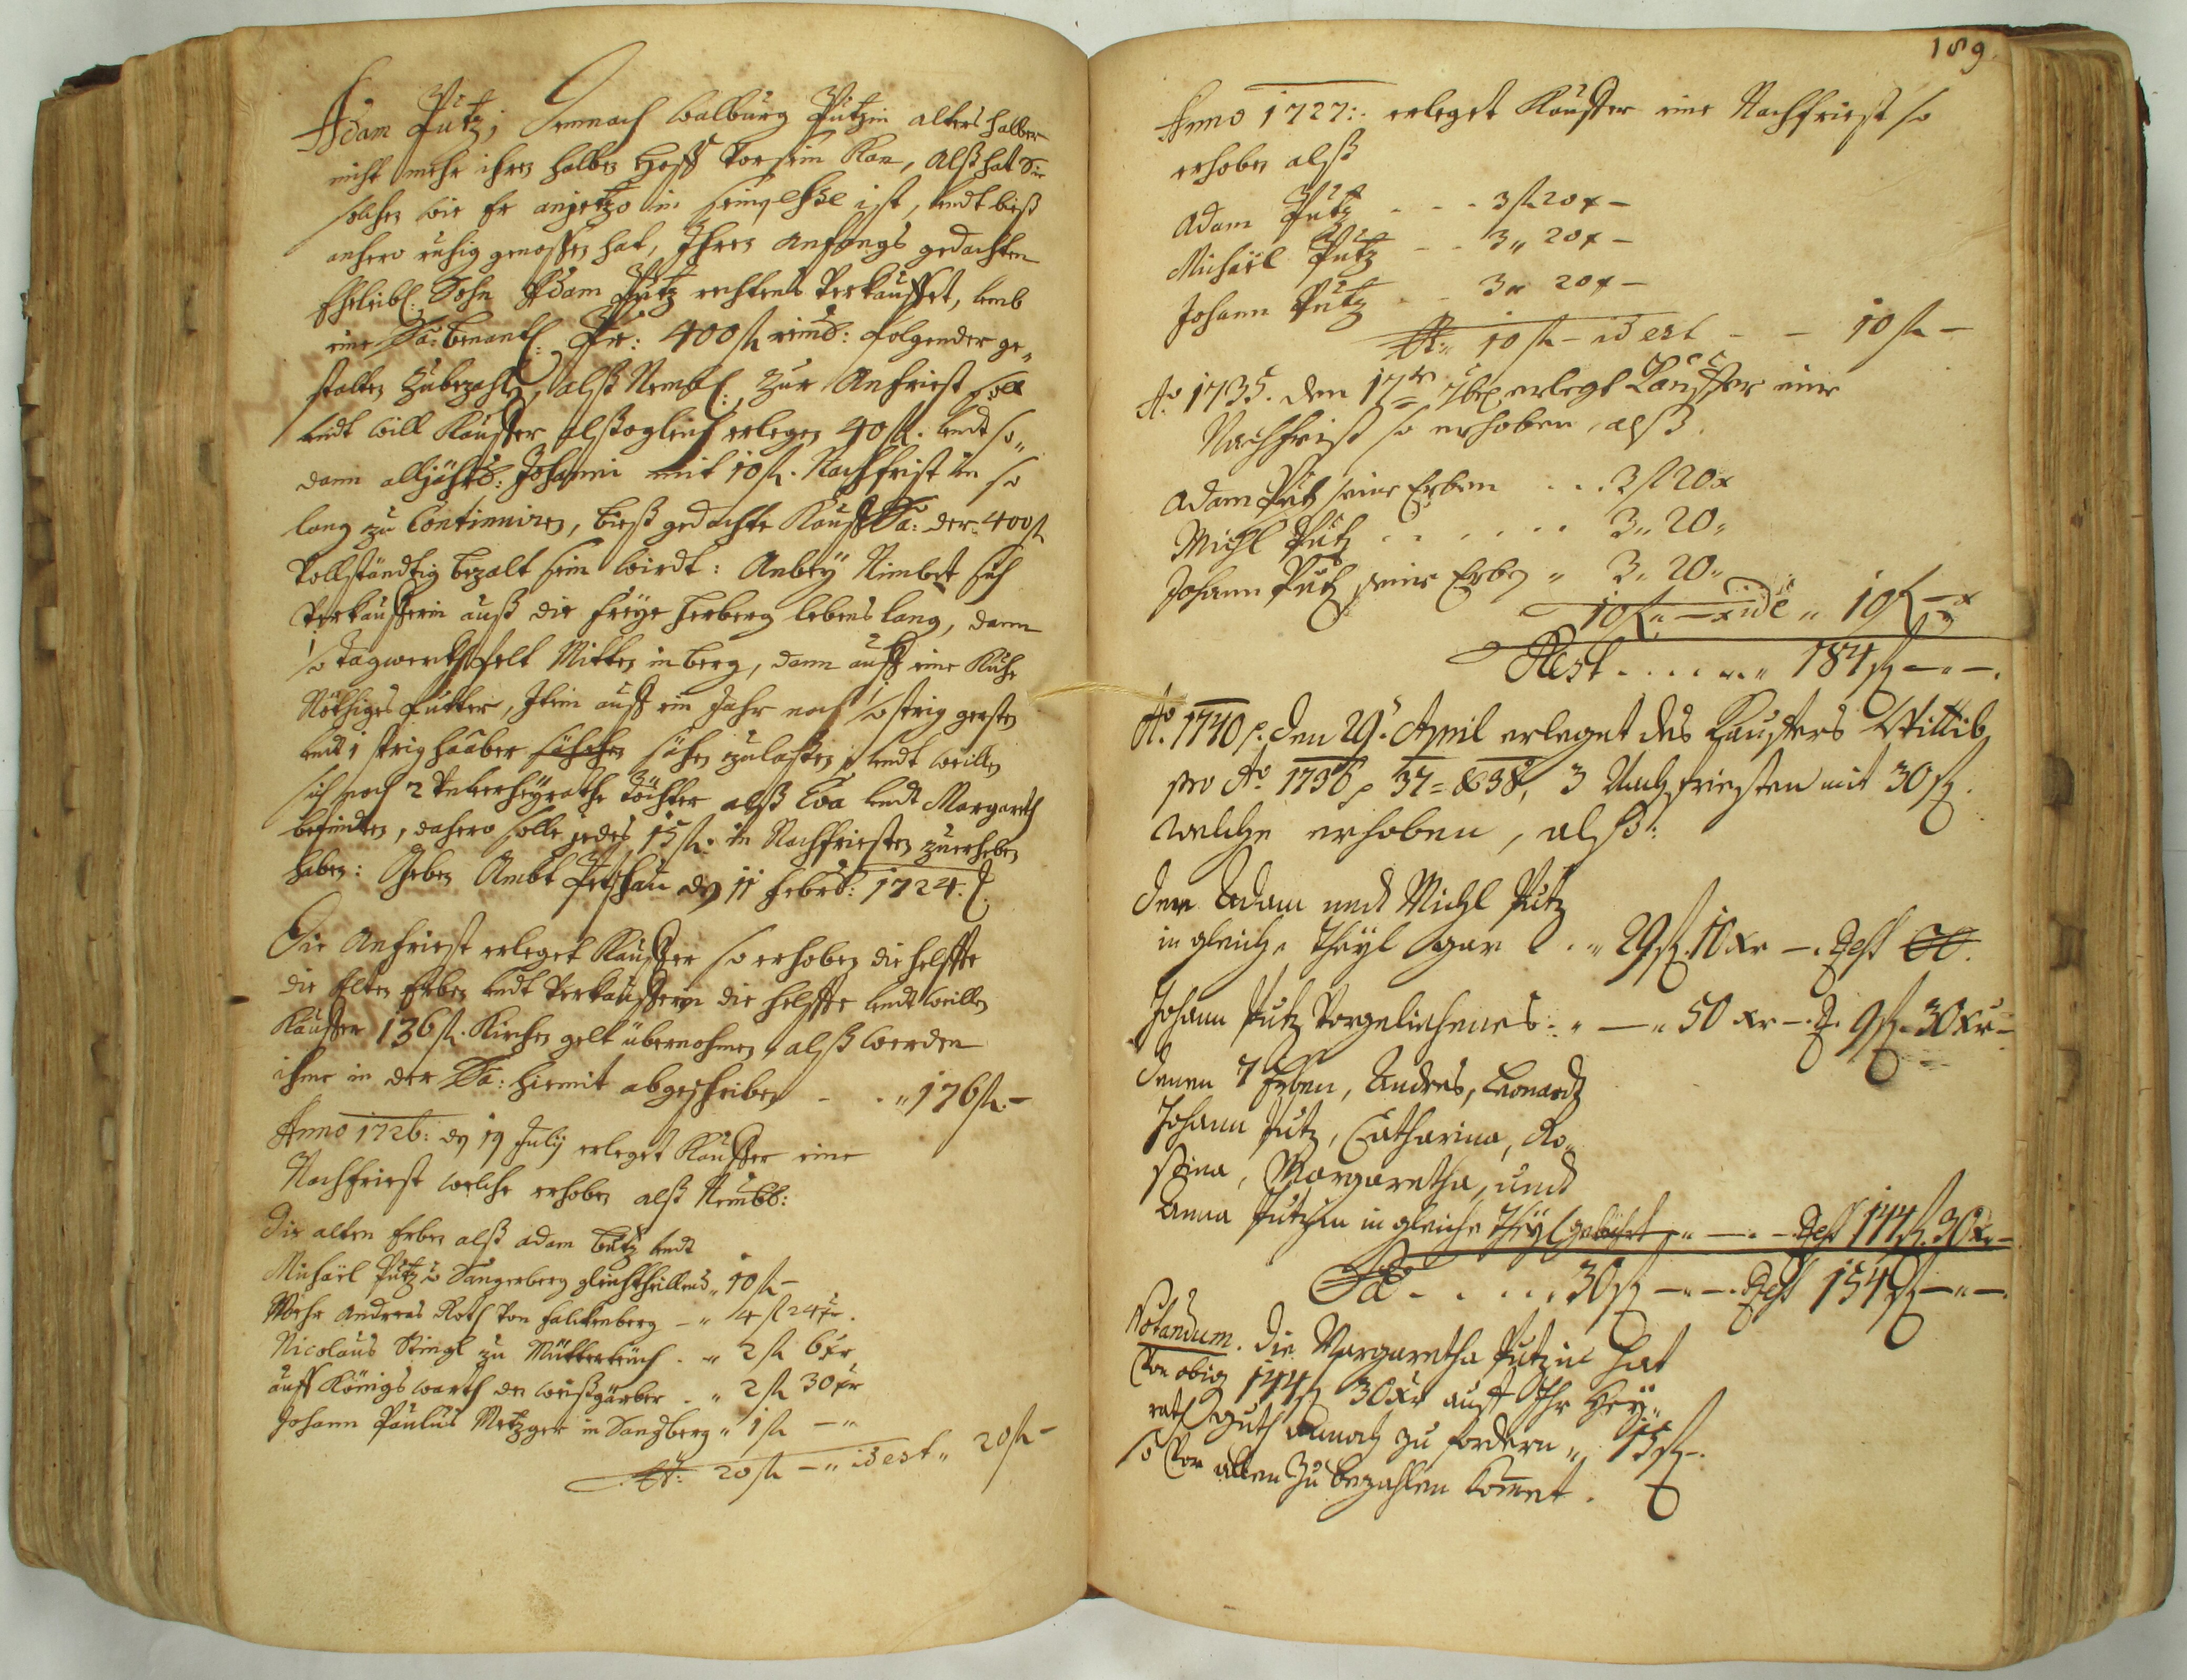 Adam Putz; Demnach Walburg Putzin alters halber
nicht mehr ihren halben Hoff Vorsein Kan, Alß hat Sie
solchen wie Er anjetzo in seinem esse ist, undt bieß
anhero ruhig genossen hat, Ihren Anfangs gedachten
Eheleibl: Sohn Adam Putz rechtens Verkauffet, umb
eine Sa: benantl: Pr: 400 fl reinl: folgender ge„
stalten Zubezahlen, alß Nembl: zur Anfriest soll
undt will Kauffer alßogleich erlegen 40 fl. undt so„
dann alljährl: Johanni mit 10 fl. Nachfrist in so
lang zu Continuiren, bieß gedachte Kauff Sa: der 400 fl
Vollständtig bezalt sein wirdt: Anbey Nimbet sich
Verkaufferin auß die freye herberg lebens lang, dann
so Tagwerckh felt Mitten in berg, dann auff eine Kuhe
Nöthiges futter, Item auff ein Jahr noch strig gersten
undt 1 strig haaber sähen zulassen, undt weillen
sich noch 2 Unverheyrathe Töchter alß Eva undt Margareth
befinden, dahero solle jedes 15 fl. in Nachfriesten zuerheben
haben: Geben Ambt Petschau dn 11 Febrl: 1724.
Die Anfriest erleget Kauffer so erhoben die helffte
die alten Erben undt Verkaufferin die helffte undt weillen
Kauffer 136 fl. Kirchen gelt übernohmen, alß werden
ihme in der Sa: hiermit abgeschrieben - . „ 176 fl. -
Anno 1726: dn 19 July erleget Kauffer eine
Nachfriest welche erhoben alß Nembl:
Die alten Erben alß Adam Putz undt
Michaël Putz v Sangerberg gleichtheillend „ 10 fl -
Mehr Andreas Roth Von Falckenberg - „ 4 fl 24 xr.
Nicolaus Stingl zu Mütterteüch . „ 2 fl 6 xr
auff Königswarth den weißgärber . „ 2 fl 30 xr
Johann Paulus Metzger in Sandberg „ 1 fl - „
St: 20 fl - „ idest „ 20 fl -
189.
Anno 1727: erleget Kauffer eine Nachfriest so
erhoben alß
Adam Putz - - - 3 fl 20 x -
Michaël Putz - - 3 „ 20 x -
Johann Putz - - 3 „ 20 x -
St: 10 fl - idest - - 10 fl -
Ao 1735. den 17te 7br erlegt Kauffer eine
Nachfrist so erhoben, alß.
Adam Putz seine Erben . . . 3 fl 20 x
Michl Putz . . . . . . 3 „ 20 „
Johann Putz seine Erben „ 3 „ 20 „
10 fl „ - x idē „ 10 fl - x
Rest . . . . . „ 184 fl - „ - .
Ao. 1740 p. den 29. April erleget des Kauffers Wittib
pro Ao 1736 p 37 = & 38, 3 Nachfriesten mit 30 fl.
welche erhoben, alß:
Der Adam und Michl Putz
in gleiche Theyl gar . „ 29 fl. 10 xr - . Rest
Johann Putz Vorgeliehenes: „ - „ 50 xr - . R. 9 fl. 30 xr -
Denen 7 Erben, Andres, Leonardt
Johann Putz, Catharina, Ro„
sina, Margaretha, und
Anna Putzin in gleiche Theyl gebührt „ - . - Rest 144 fl. 30 xr -
Sa . . . . . 30 fl - „ - . Rest 154 fl - „ - .
Notandum. Die Margaretha Putzin hat
Von obig 144 fl 30 xr auff Ihr Hey„
rath Guth annoch zu fordern „ 15 fl - .
so Von allen zu bezahlen kommet.